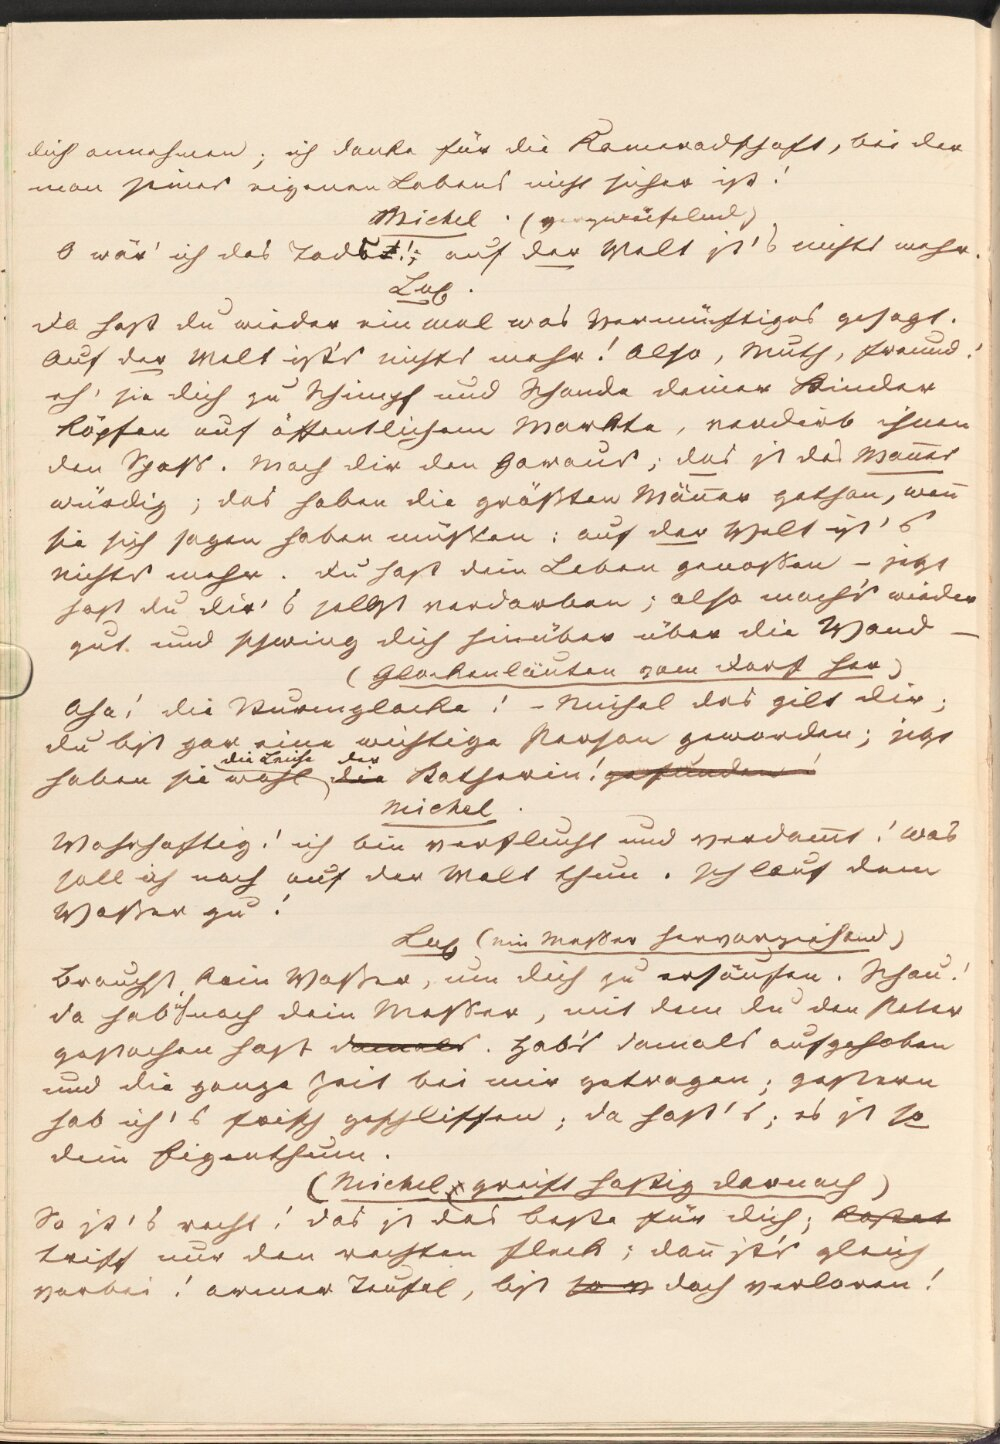 dich annehmen; ich danke für die Kameradschaft, bei der
man seines eigenen Lebens nicht sicher ist!
Michel. (verzweifelnd)
O wär' ich des Tods!; auf der Welt ist's nichts mehr.
Lux.
Da hast du wieder einmal was Vernünftiges gesagt.
Auf der Welt ist's nichts mehr! Also, Muth, Freund!
eh' sie dich zu Schimpf und Schande deiner Kinder
köpfen auf öffentlichem Markte, verdirb ihnen
den Spaß. Mach dir den Garaus; das ist des Mannes
würdig; das haben die größten Männer gethan, wenn
sie sich sagen haben müßen: auf der Welt ist's
nichts mehr. Du hast dein Leben genoßen – jetzt
hast du dir's selbst verdorben; also mach's wieder
gut und schwing dich hinüber über die Wand –
(Glockenläuten vom Dorf her)
Aha! die Thurmglocke! – Michel das gilt dir;
du bist gar eine wichtige Person geworden; jetzt
haben sie wohl die Leiche der die Katherin! gefunden!
Michel.
Wahrhaftig! ich bin verflucht und verdammt! was
soll ich noch auf der Welt thun. Ich lauf dem
Waßer zu!
Lux (ein Meßer hervorziehend)
Brauchst kein Waßer, um dich zu ersäufen. Schau!
da hab' ich noch dein Meßer, mit dem du den Peter
gestochen hast damals. Hab's damals aufgehoben
und die ganze Zeit bei mir getragen; gestern
hab ich's frisch geschliffen; da hast's; es ist ja
dein Eigenthum.
(Michel greift hastig darnach)
So ist's recht! das ist das beste für dich; kostet
triff nur den rechten Fleck; dann ist's gleich
vorbei! armer Teufel, bist so doch verloren!